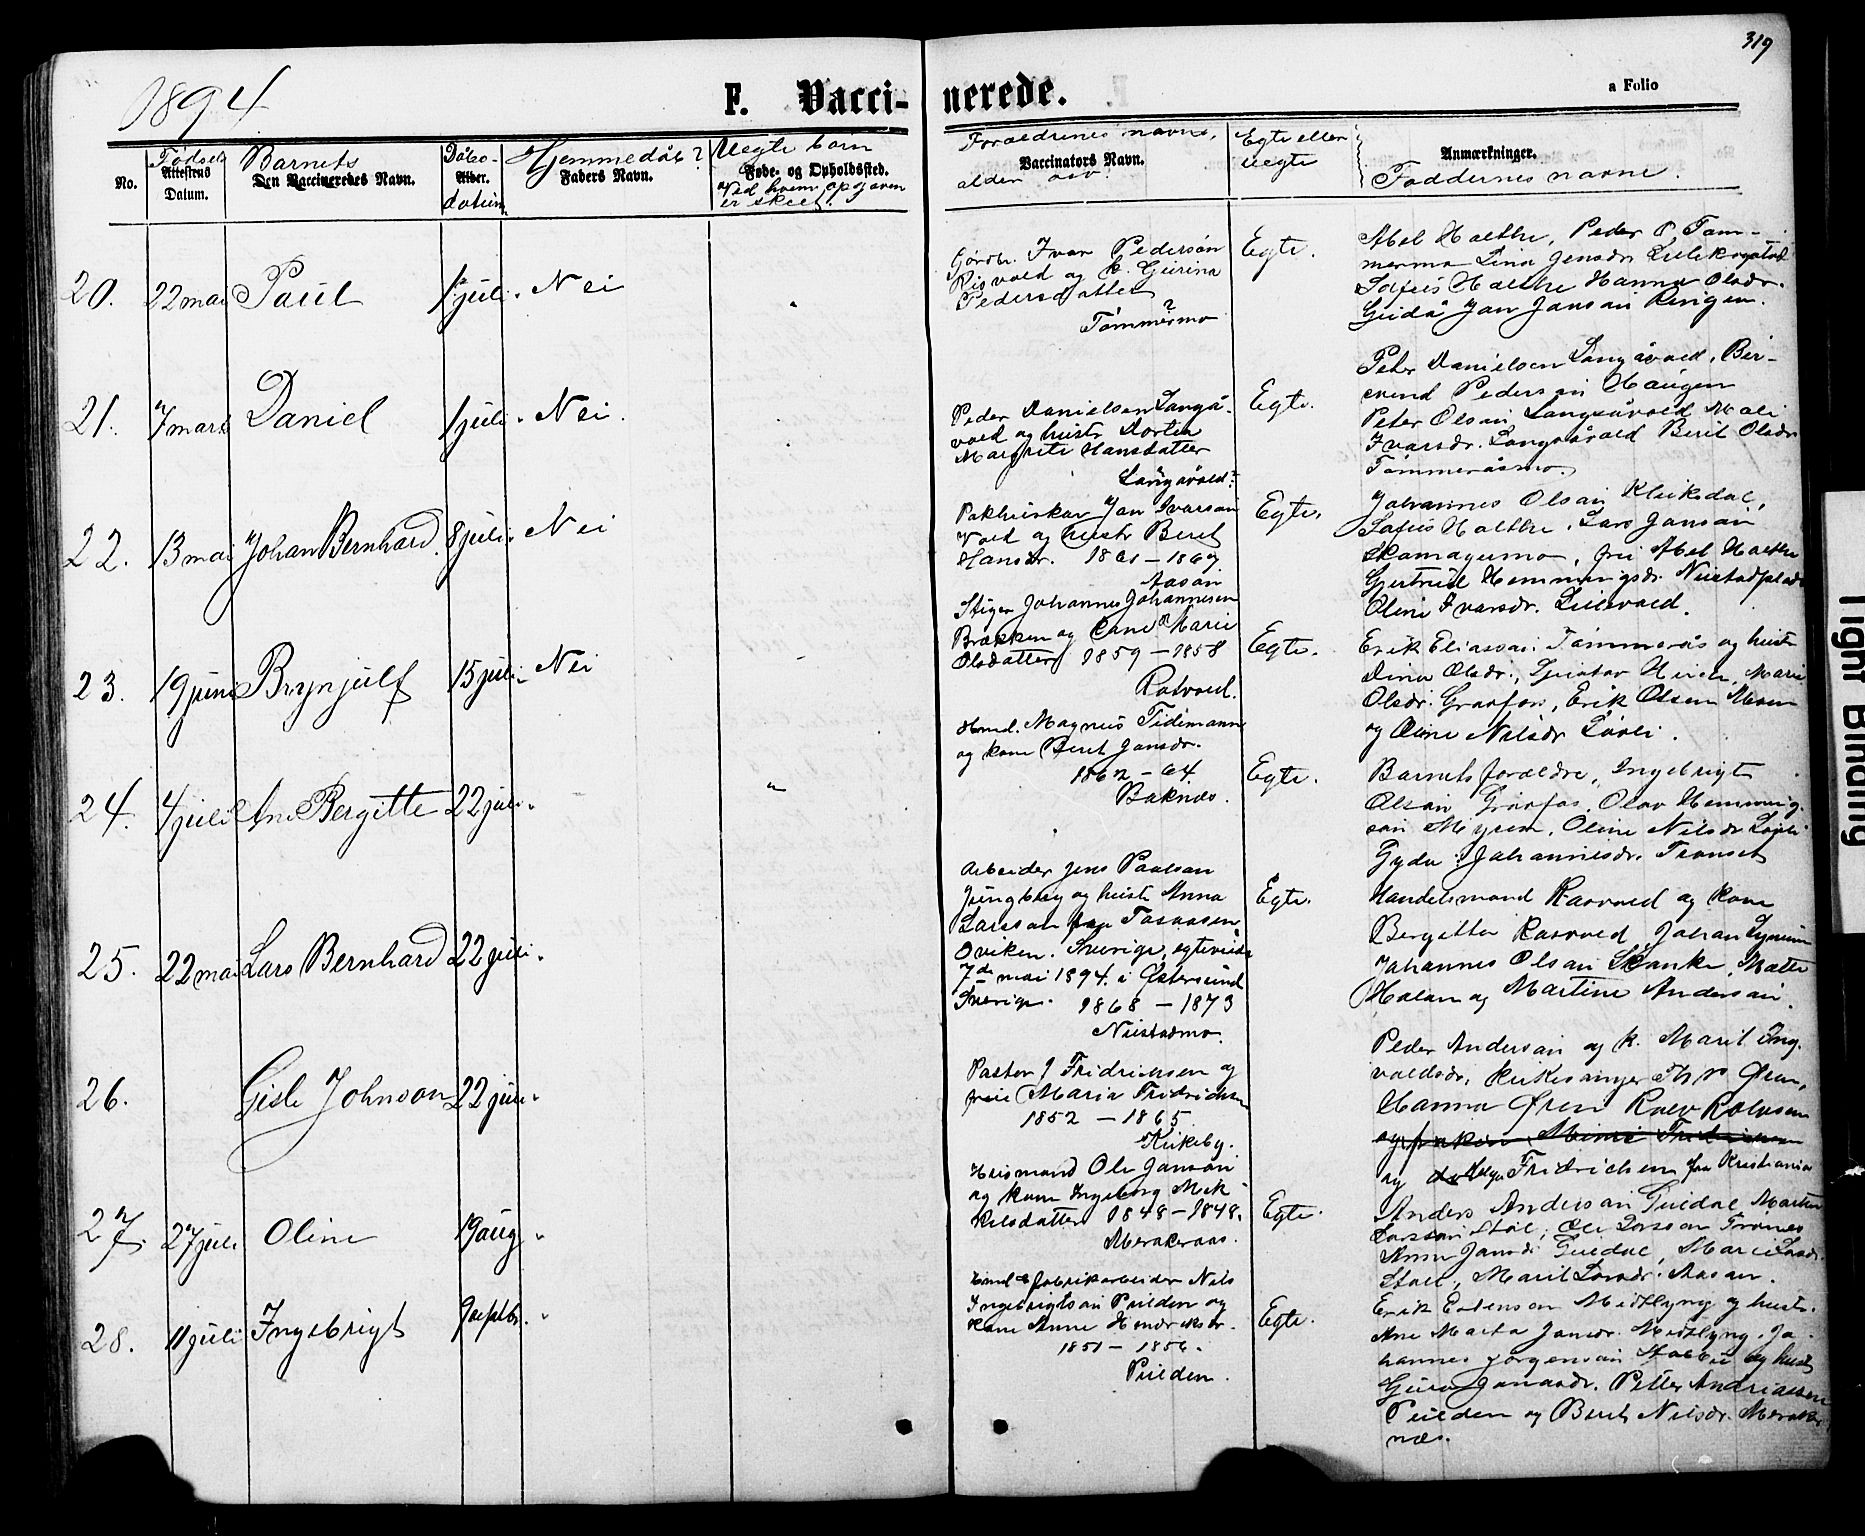 319
1894
F. Vacci- nerede.
a Folio
No.
Fødsels
Attestens
Datum.
Barnets
Den Vaccineredes Navn.
Dåbs-
Alder.
datum
Hjemmedåb?
Faders Navn.
Uegte børn
Føde- og Opholdssted.
Ved hvem opgaven
er skeet?
Forældrenes navne,
Vaccinators Navn.
alder osv.
Egte eller
uegte
Anmærkninger.
Faddernes navne.
20.
22 mai
Paul
1 juli.
Nei
Ivar Pedersøn
og k. Gurina
Pedersdatter
Tømmermo
Egte.
Abel Holthe, Peder
Holthe Hanna Olsdr.
Jon Jonsøn
21.
7 mars
Daniel
1 juli.
Nei.
Peder Danielsen Langå-
vold og hustr Dortea
Margrete Hansdatter
Langåvold
Egte.
Peter Danielsen Langåvold, Ber-
svend Pedersøn Haugen
Peter Olsøn Langåvold Mali
Ivarsdr. Langåvold Berit Olsdr
Tømmeråsmo.
22.
13 mai
Johan Bernhard.
8 juli.
Nei
Jon Ivarsøn
Vold og hustr Beret
Hansdr. 1861 - 1867
Aasan
Egte.
Johannes Olsøn Kluksdal,
Holthe, Lars Jonsøn
fru Abel Holthe
Gjertrud Hemmingsdr.
Oline Ivarsdr. Lillevold.
23.
19 juni
Brynjulf
15 juli.
Nei
Stiger Johannes Johannesen
Brækken og kone Marie
Olsdatter 1859 - 1858
Rotvold.
Egte.
Erik Eliassøn Tømmerås og hustr
Dina Olsdr., Marie
Olsdr. Graafos, Erik Olsen Moen
og Oline Nilsdr
24.
4 juli
Ane Bergitte
22 juli.
Hmd. Magnus Tidemann
og kone Beret Jonsdr.
1862 - 64
Baknæs.
Egte.
Barnets forældre, Ingebrigt
Olsøn Graafos, Olav Hemming-
søn Myren, Oline Nilsdr
Gyda Johannesdr. Tronset
25.
22 mai
Lars Bernhard
22 juli.
Arbeider Jens Paulsøn
Ljungberg og hustr Anna
Larsson fra
Oviken. Sverige, egteviede
7de mai 1894 i Østersund
Sverige. 1868 - 1873
Nustadmo.
Egte.
Handelsmand Raavold og kone
Bergitte Raavold, Johan
Johannes Olsøn Skanke, Mette
Holan og Martine Andersøn.
26.
Gisle Johnson
22 juli.
Pastor J Fridrichsen og
frue Maria Fridrichsen
1852 - 1865
Kirkeby.
Peder Andersøn og k. Marit Ing-
valdsdr, kirkesanger Øren,
Hanna Øren Rolv Rolvsøn
og frøken Mimi Fridrichsen
og Helga Fridrichsen fra Kristiania
27.
27 juli
Oline
19 aug.
Husmand Ole Jonsøn
og kone Ingeborg Mik-
kelsdatter 1848 - 1848.
Merakeraas.
Egte.
Anders Andersøn Gudal Morten
Larssøn Stål, Ole Larssøn Trønes
Anne Jonsdr Gudal, Marit Larsdr.
Stall, Marit Larsdr. Aasan.
28.
11 juli
Ingebrigt
9 septbr.
Hmd & fabrikarbeider Nils
Ingebrigtsøn Pulden og
kone Anne Hendriksdr.
1851 - 1856.
Pulden.
Egte.
Erik Estensøn Midtlyng og hustr.
Ane Marta Jonsdr. Midtlyng. Jo-
hannes Jørgensøn og hustr
Guru Jonasdr. Petter Andreassen
Pulden og Beret Nilsdr. Meraker-
næs.
Tight Binding